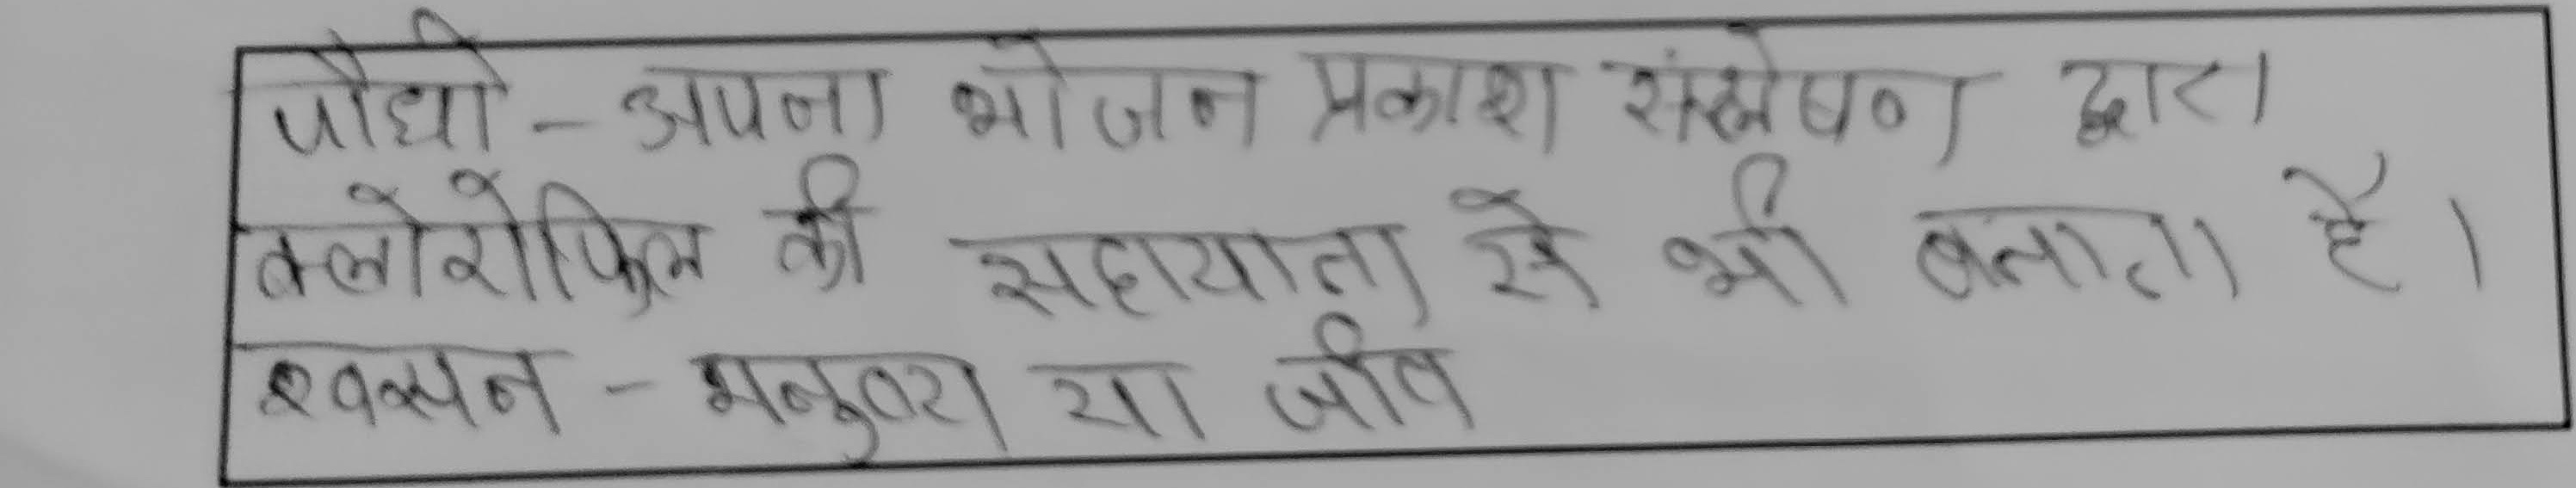 पौधो - अपना भोजन प्रकाश संश्लेषण द्वारा
क्लोरोफिल की सहायाता से भी बनाता है।
श्वसन - मनुष्य या जीव